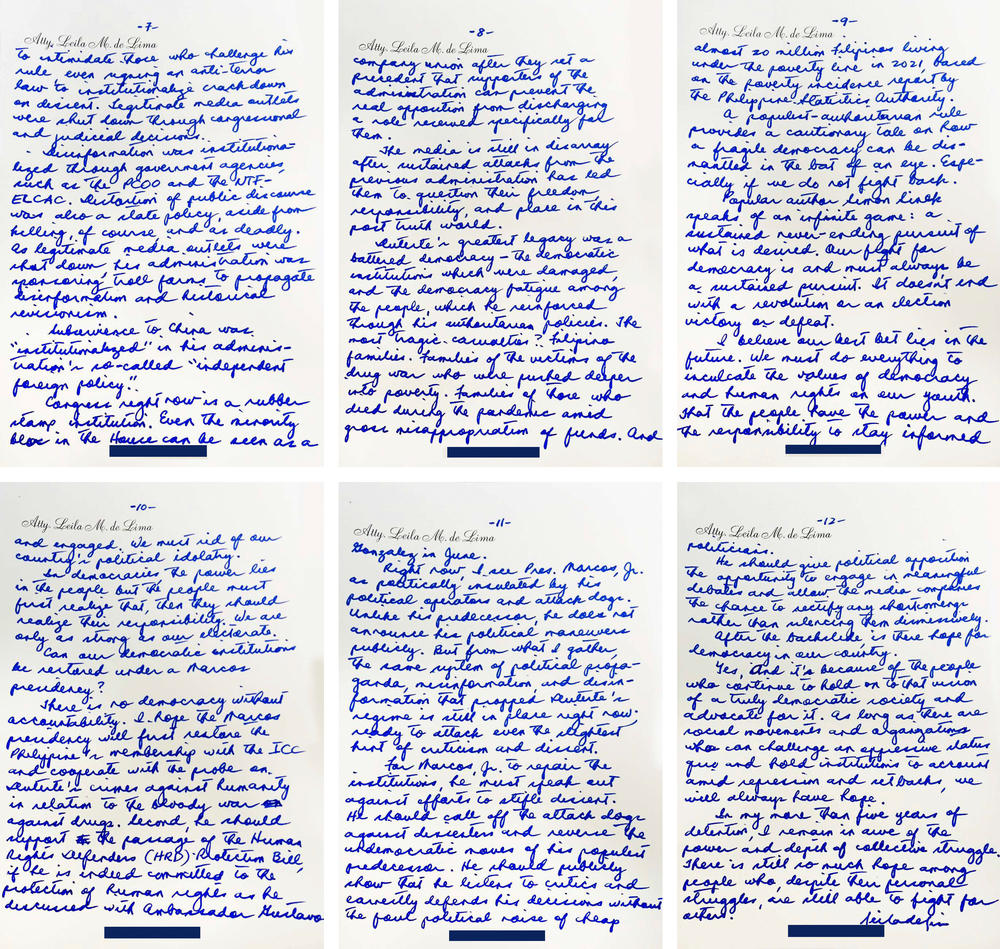 -7-
Atty. Leila M. de Lima
to intimidate those who challenge his
rule, even signing an anti-terror
law to institutionalize crackdown
on dissent. Legitimate media outlets
were shut down through congressional
and judicial decisions.
Disinformation was institutiona-
lized through government agencies,
such as the PCOO and the NTF-
ELCAC. Distortion of public discourse
was also a state policy, aside from
killing, of course, and as deadly.
As legitimate media outlets were
shut down, his administration was
sponsoring troll farms to propagate
disinformation and historical
revisionism.
Subservience to China was
"institutionalized" in his adminis-
tration's so-called "independent
foreign policy".
Congress right now is a rubber
stamp institution. Even the minority
bloc in the House can be seen as a
-8-
Atty. Leila M. de Lima
company union after they set a
precedent that supporters of the
administration can prevent the
real opposition from discharging
a role reserved specifically for
them.
The media is still in disarray
after sustained attacks from the
previous administration has led
them to question their freedom,
responsibility, and place in this
post truth world.
Duterte's greatest legacy was a
battered democracy - the democratic
institutions which were damaged,
and the democracy fatigue among
the people, which he reinforced
through his authoritarian policies. The
most tragic casualties? Filipino
families. Families of the victims of the
drug war who were pushed deeper
into poverty. Families of those who
died during the pandemic amid
gross misappropriation of funds. And
-9-
Atty. Leila M. de Lima
almost 20 million Filipinos living
under the poverty line in 2021, based
on the poverty incidence report by
the Philippine Statistics Authority.
A populist-authoritarian rule
provides a cautionary tale on how
a fragile democracy can be dis-
mantled in the bat of an eye. Espe-
cially if we do not fight back.
Popular author Simon Sinek
speaks of an infinite game: a
sustained never-ending pursuit of
what is desired. Our fight for
democracy is and must always be
a sustained pursuit. It doesn't end
with a revolution or an election
victory or defeat.
I believe our best bet lies in the
future. We must do everything to
inculcate the values of democracy
and human rights on our youth.
That the people have the power and
the responsibility to stay informed
-10-
Atty. Leila M. de Lima
and engaged. We must rid of our
country's political idolatry.
In democracies the power lies
in the people but the people must
first realize that, then they should
realize their responsibility. We are
only as strong as our electorate.
Can our democratic institutions
be restored under a Marcos
presidency?
There is no democracy without
accountability. I hope the Marcos
presidency will first restore the
Philippine's membership with the ICC
and cooperate with the probe on
Duterte's crimes against humanity
in relation to the bloody war
against drugs. Second, he should
support the passage of the Human
Rights Defenders (HRD) Protection Bill,
if he is indeed committed to the
protection of human rights as he
discussed with Ambassador Gustavo
-11-
Atty. Leila M. de Lima
Gonzalez in June.
Right now I see Pres. Marcos, Jr.
as politically insulated by his
political operators and attack dogs.
Unlike his predecessor, he does not
announce his political maneuvers
publicly. But from what I gather,
the same system of political propa-
ganda, misinformation and disin-
formation that propped Duterte's
regime is still in place right now,
ready to attack even the slightest
hint of criticism and dissent.
For Marcos, Jr. to repair the
institutions, he must speak out
against efforts to stifle dissent.
He should call off the attack dogs
against dissenters and reverse the
undemocratic moves of his populist
predecessor. He should publicly
show that he listens to critics and
earnestly defends his decisions without
the foul political noise of cheap
-12-
Atty. Leila M. de Lima
politicians.
He should give political opposition
the opportunity to engage in meaningful
debates and allow the media companies
the chance to rectify any shortcomings
rather than silencing them dismissively.
After the backslide is there hope for
democracy in our country.
Yes, and it's because of the people
who continue to hold on to that vision
of a truly democratic society and
advocate for it. As long as there are
social movements and organizations
who can challenge an oppressive status
quo and hold institutions to account
amid repression and setbacks, we
will always have hope.
In my more than five years of
detention, I remain in awe of the
power and depth of collective struggle.
There is still so much hope among
people who, despite their personal
struggles, are still able to fight for
others.